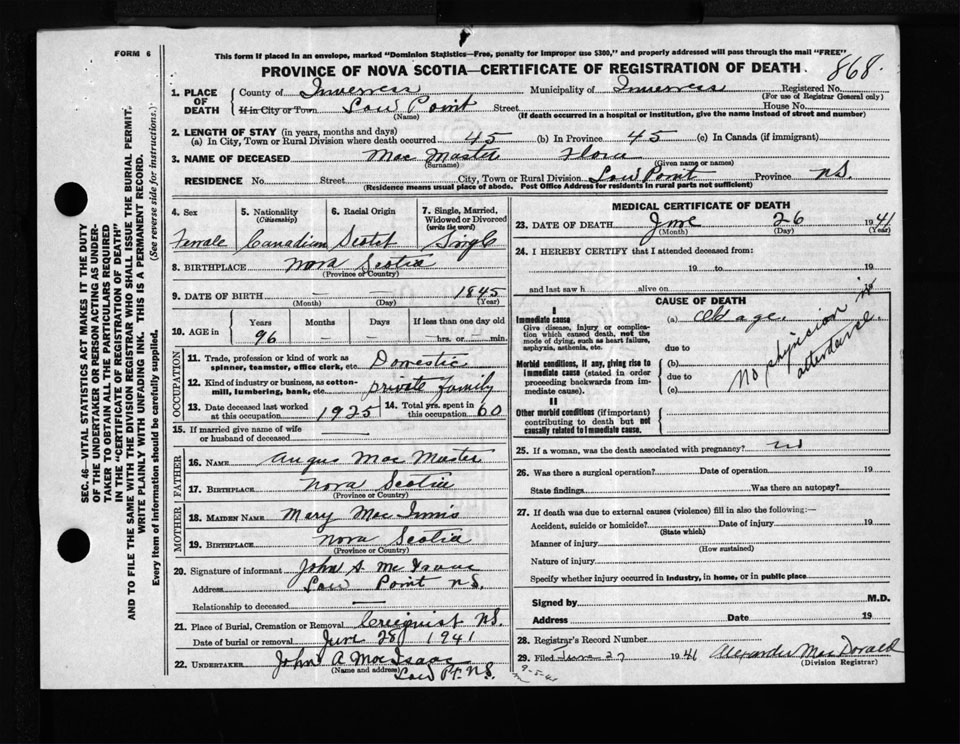 FORM 6
This form if placed in an envelope, marked "Dominion Statistics—Free, penalty for improper use $300," and properly addressed will pass through the mail "FREE"
PROVINCE OF NOVA SCOTIA—CERTIFICATE OF REGISTRATION OF DEATH
868.
1. PLACE OF DEATH County of Inverness Municipality of Inverness Registered No.
(For use of Registrar General only)
If in City or Town Low Point Street House No.
(Name) (If death occurred in a hospital or institution, give the name instead of street and number)
2. LENGTH OF STAY (in years, months and days)
(a) In City, Town or Rural Division where death occurred 45 (b) In Province 45 (c) In Canada (if immigrant)
3. NAME OF DECEASED Mac Master Flora
(Surname) (Given name or names)
RESIDENCE No. Street City, Town or Rural Division Low Point Province N.S.
(Residence means usual place of abode. Post Office Address for residents in rural parts not sufficient)
4. Sex 5. Nationality (Citizenship) 6. Racial Origin 7. Single, Married, Widowed or Divorced (write the word)
Female Canadian Scotch Single
8. BIRTHPLACE Nova Scotia
(Province or Country)
9. DATE OF BIRTH 1845
(Month) (Day) (Year)
10. AGE in Years Months Days If less than one day old
96 hrs. or min.
OCCUPATION
11. Trade, profession or kind of work as spinner, teamster, office clerk, etc. Domestic
12. Kind of industry or business, as cotton-mill, lumbering, bank, etc. private family
13. Date deceased last worked at this occupation 1925 14. Total yrs. spent in this occupation 60
15. If married give name of wife or husband of deceased —
FATHER
16. NAME Angus Mac Master
17. BIRTHPLACE Nova Scotia
(Province or Country)
MOTHER
18. MAIDEN NAME Mary Mac Innis
19. BIRTHPLACE Nova Scotia
(Province or Country)
20. Signature of informant John A. Mc Isaac
Address Low Point N.S.
Relationship to deceased —
21. Place of Burial, Cremation or Removal Creignish N.S.
Date of burial or removal June 28 1941
22. UNDERTAKER John A MacIsaac
(Name and address) Low Pt. N.S.
MEDICAL CERTIFICATE OF DEATH
23. DATE OF DEATH June 26 1941
(Month) (Day) (Year)
24. I HEREBY CERTIFY that I attended deceased from:
19 to 19
and last saw h alive on 19
CAUSE OF DEATH
I
Immediate cause (a) Old age.
Give disease, injury or complication which caused death, not the mode of dying, such as heart failure, asphyxia, asthenia, etc.
due to
Morbid conditions, if any, giving rise to immediate cause (stated in order proceeding backwards from immediate cause).
(b)
due to
(c)
No physician in attendance.
II
Other morbid conditions (if important) contributing to death but not causally related to immediate cause.
25. If a woman, was the death associated with pregnancy? no
26. Was there a surgical operation? Date of operation 19
State findings Was there an autopsy?
27. If death was due to external causes (violence) fill in also the following:—
Accident, suicide or homicide? Date of injury 19
(State which)
Manner of injury
(How sustained)
Nature of injury
Specify whether injury occurred in industry, in home, or in public place
Signed by M.D.
Address Date 19
28. Registrar's Record Number
29. Filed June 27 1941 Alexander MacDonald
(Division Registrar)
SEC. 46—VITAL STATISTICS ACT MAKES IT THE DUTY
OF THE UNDERTAKER OR PERSON ACTING AS UNDER-
TAKER TO OBTAIN ALL THE PARTICULARS REQUIRED
IN THE "CERTIFICATE OF REGISTRATION OF DEATH"
AND TO FILE THE SAME WITH THE DIVISION REGISTRAR WHO SHALL ISSUE THE BURIAL PERMIT.
WRITE PLAINLY WITH UNFADING INK. THIS IS A PERMANENT RECORD.
Every item of information should be carefully supplied. (See reverse side for instructions.)